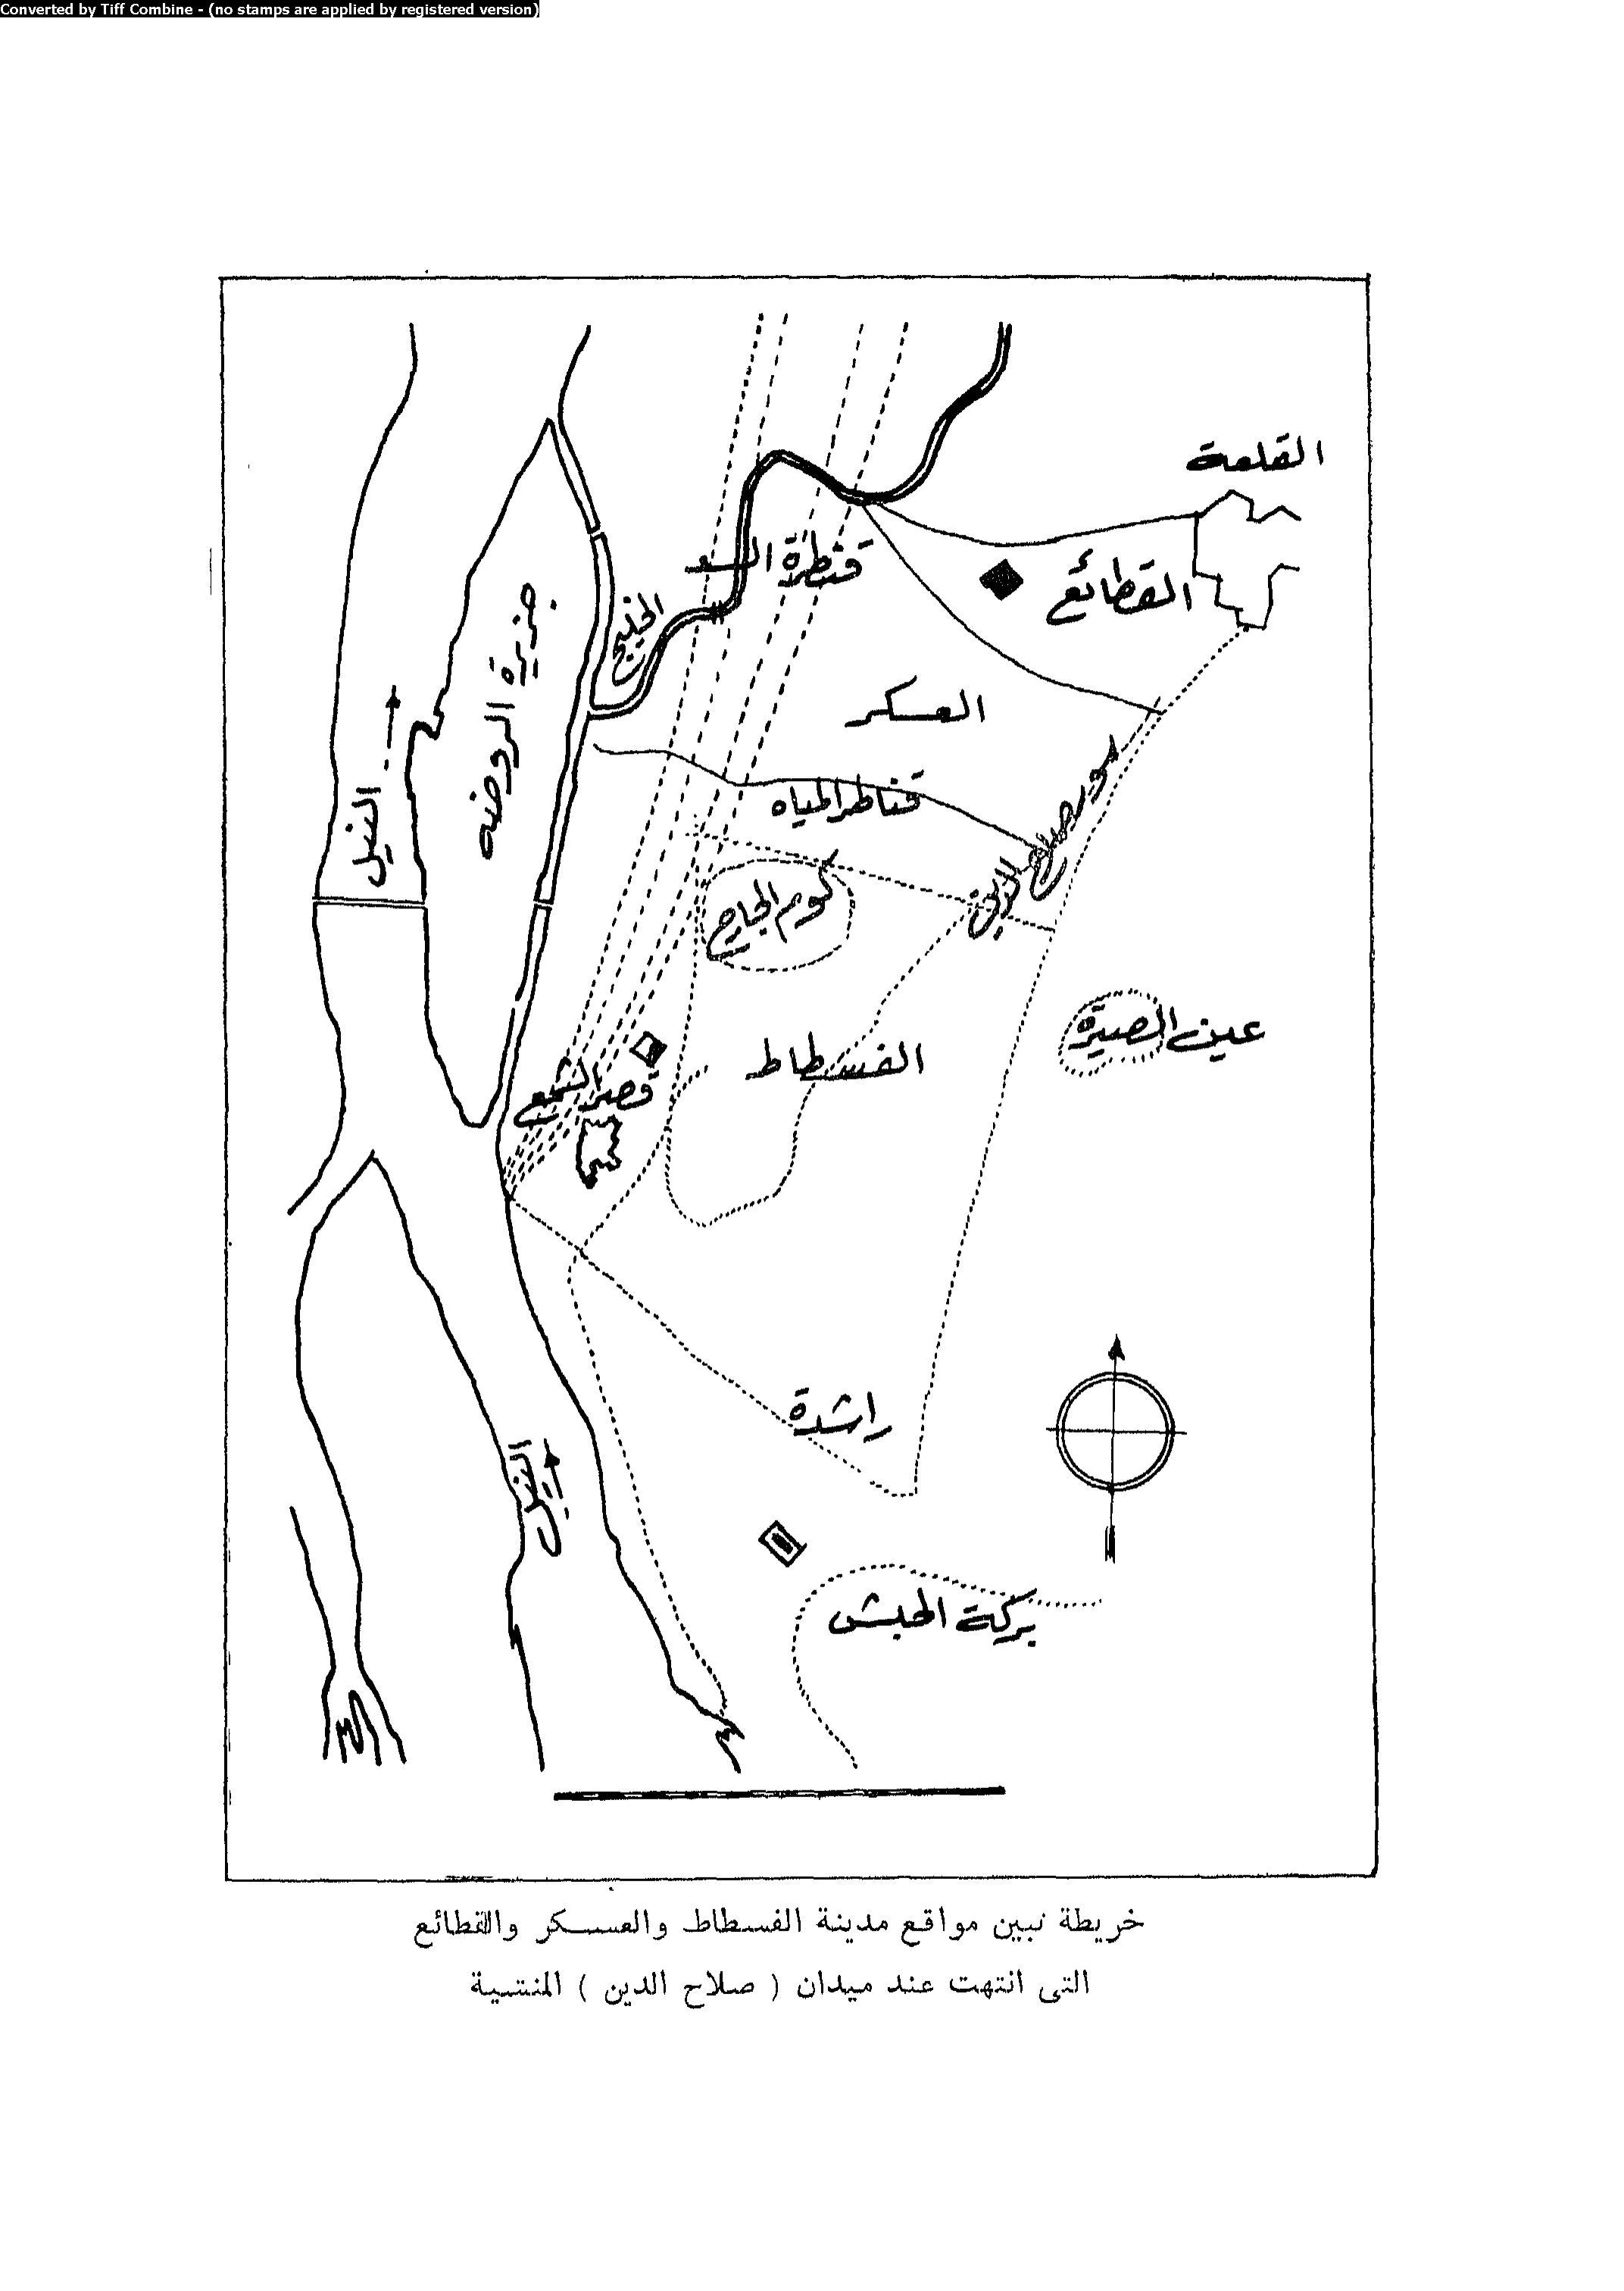 Converted by Tiff Combine - (no stamps are applied by registered version)
القلعة
قنطرة السد
القطائع
الخليج
جزيرة الروضه
العسكر
النيل
قناطر المياه
سور صلاح الدين
كوم الجارح
عين الصيرة
الفسطاط
قصر الشمع
راشدة
النيل
بركة الحبش
خريطة نبين مواقع مدينة الفسطاط والعسكر والقطائع
التى انتهت عند ميدان ( صلاح الدين ) المنشية